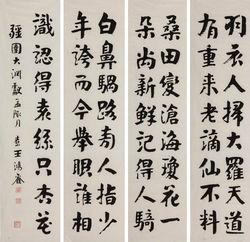 羽衣人掃大羅天道
有重來老謫仙不料
桑田變滄海瓊花一
朵尚新鮮記得人騎
白鼻騧路旁人指少
年誇而今舉眼誰相
識認得袁絲只杏花
疆圉大淵獻孟陬月 王鴻